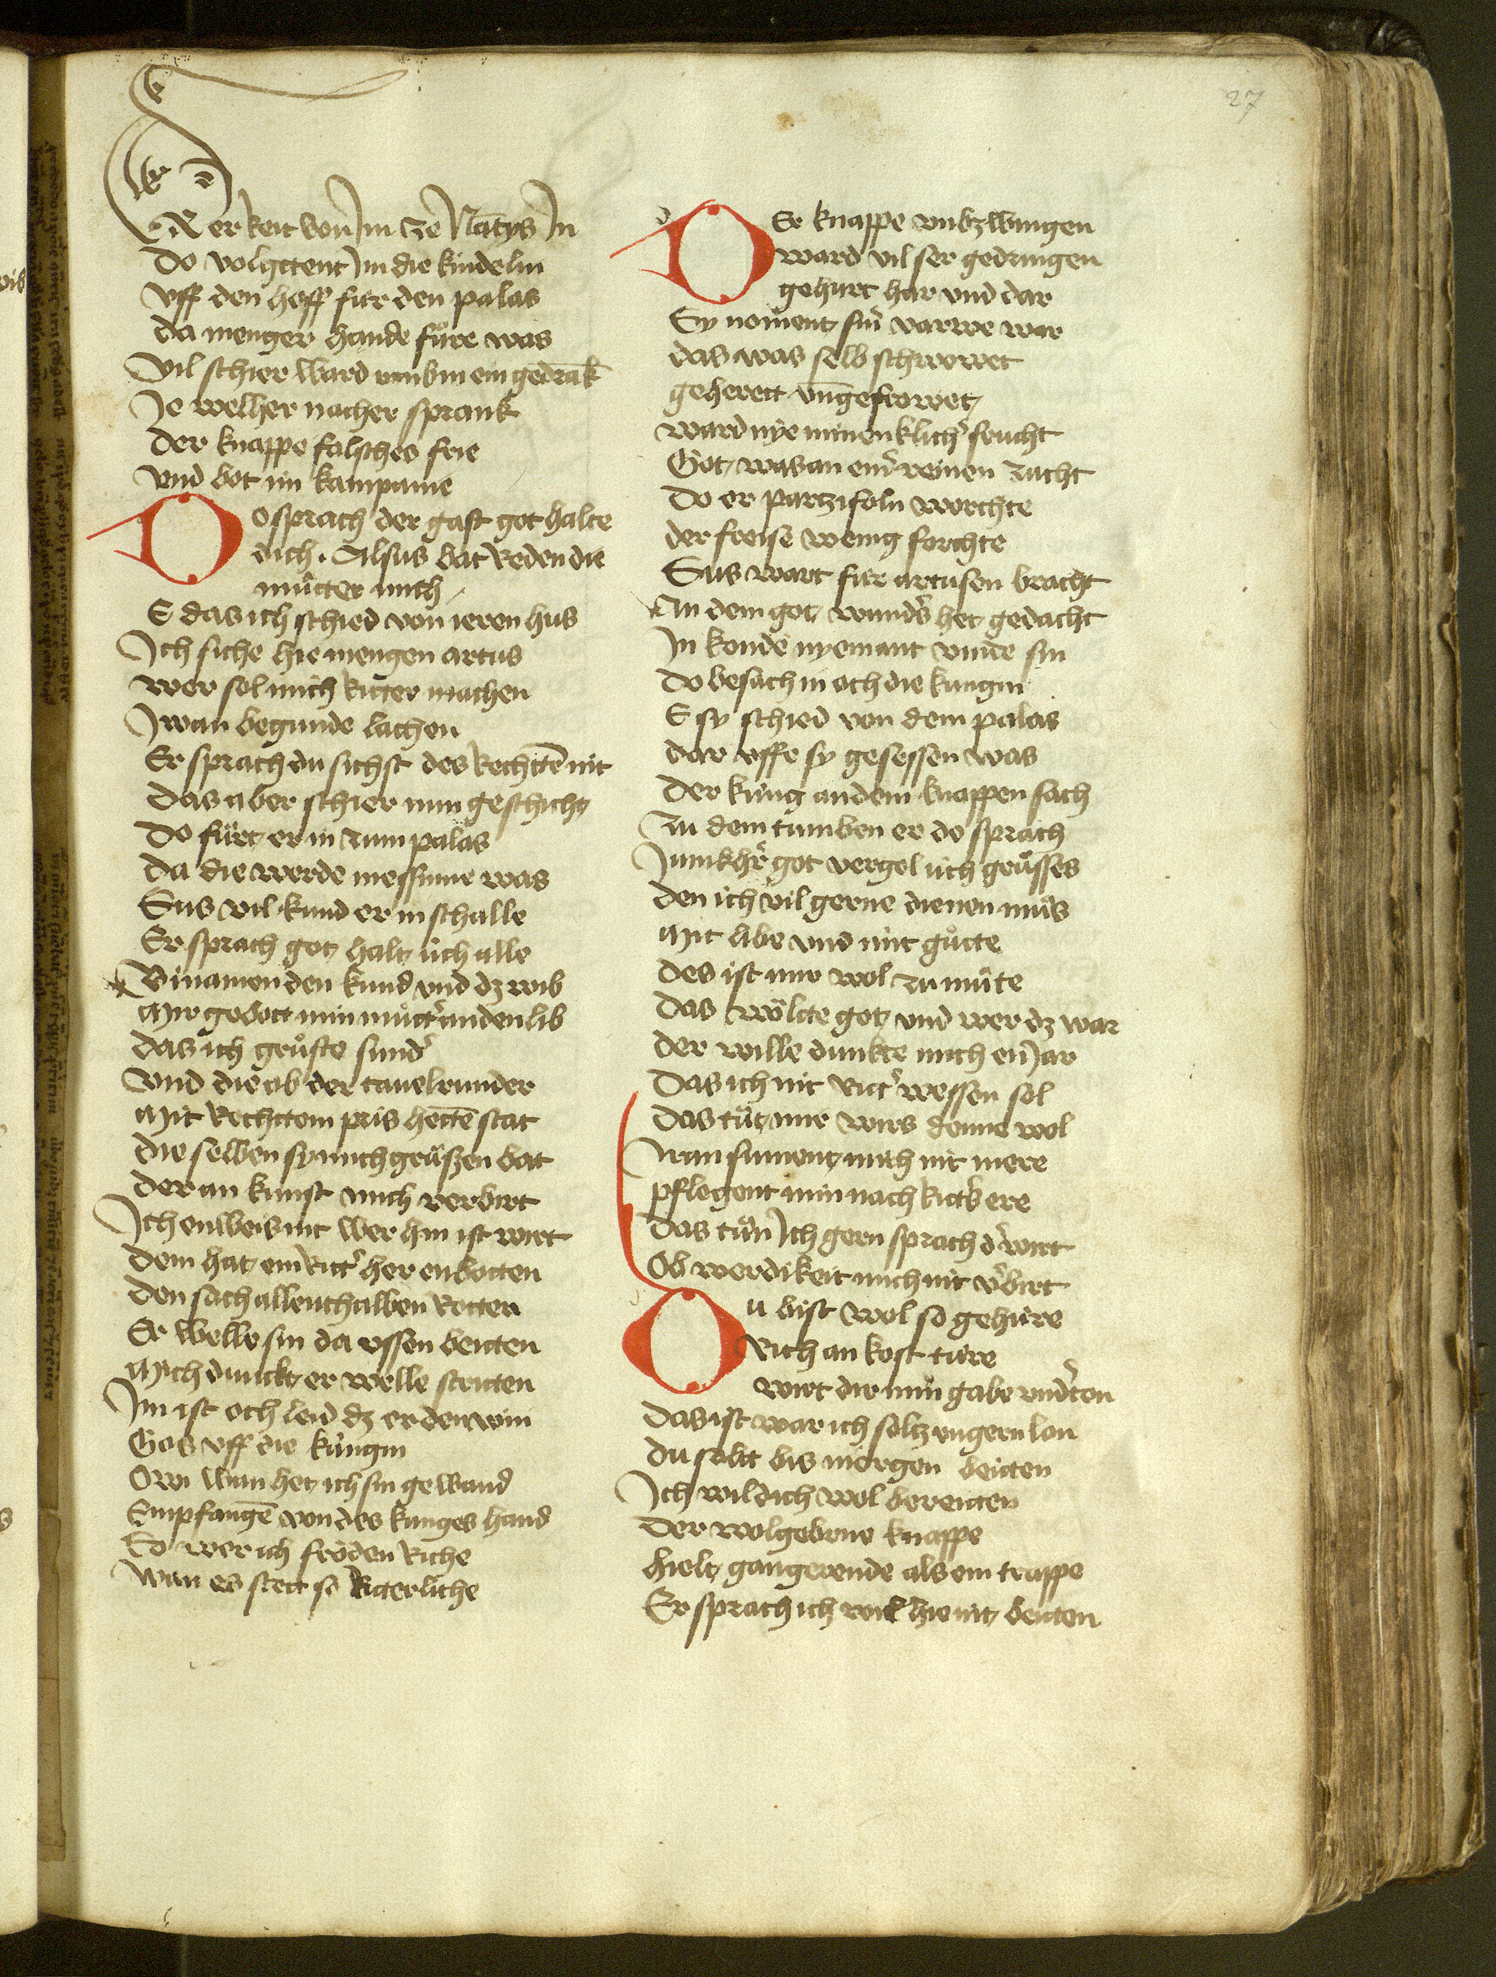 27
Er keit von Im ze Nātys In
Do volgetent Im die kindelin
vff den hoff für den palas
da menger hande fůre was
Vil schier ward vmb in ein gedrāk
Je welher nacher sprank
der knappe falsches frie
vnd bot im kampanie
Do sprach der gast got halte
dich. Alsus bat Reden die
můtter mich
E das ich schied von ieren hus
Ich siche hie mengen artus
wer sol mich Ritter machen
Iwan begunde lachen
Er sprach du sichst des Rechttē nit
Das aber schier nun geschicht
Do fůrt er in zum palas
da die werde messinne was
Sus vil kund er in schalle
Er sprach got halt üch alle
Binamen den kund vnd dz wib
Mir gebott min můttr̄ an den lib
das ich grůste sundr̄
Vnd die ob der tauelrunder
Mit Rechttem pris hettē stat
die selben sy mich grůszen bat
der an kunst mich verbirt
Ich enweis nit wer hin ist wirt
dem hat ein Rittr̄ her enbotten
den sach allenthalben Rotten
Er welle sin da vssen beiten
Mich dunckt er welle striten
Im ist och leid dz er den win
Gos vff die küngin
Owi wan het ich sin gewand
Empfangē von des kunges hand
So wer ich fröden Riche
wan es stett so Ritterliche
Der knappe vnbzwungen
ward vil ser gedrungen
gehurt har vnd dar
Sy noment sin varwe war
das was selb schowet
geherett vn̄ gefrowet
ward nye minenklichr̄ frucht
Got was an einr̄ reinen zucht
do er partzifaln worchte
der freise wenig forchte
Sus wart für artusen bracht
An dem got wundr̄s het gedacht
Im konde nyemant vinde sin
do besach in och die kungin
E sy schied von dem palas
dar vffe sy gesessen was
der küng an dem knappen sach
zu dem tumben er do sprach
Iunckhr̄ got vergel üch grůsses
den ich vil gerne dienen můs
Mit libe vnd mit gůtte
des ist mir wol zu můte
das wölte got vnd wer dz war
der wille dunkte mich ein Iar
das ich nit rittr̄ wessen sol
das tůt mir wirs denne wol
Nun sument mich nit mere
pflegent min nach Rittr̄s ere
das tůn Ich gern sprach dr̄ wirt
Ob werdikeit mich nit vr̄birt
Du bist wol so gehüre
Rich an kost türe
wirt dir min gabe vndr̄ton
das ist war ich soltz vngern lon
du solt bis morgen beitten
Ich wil dich wol bereitten
der wolgeborne knappe
hielt gangerende als ein trappe
Er sprach ich wil hie nit beitten